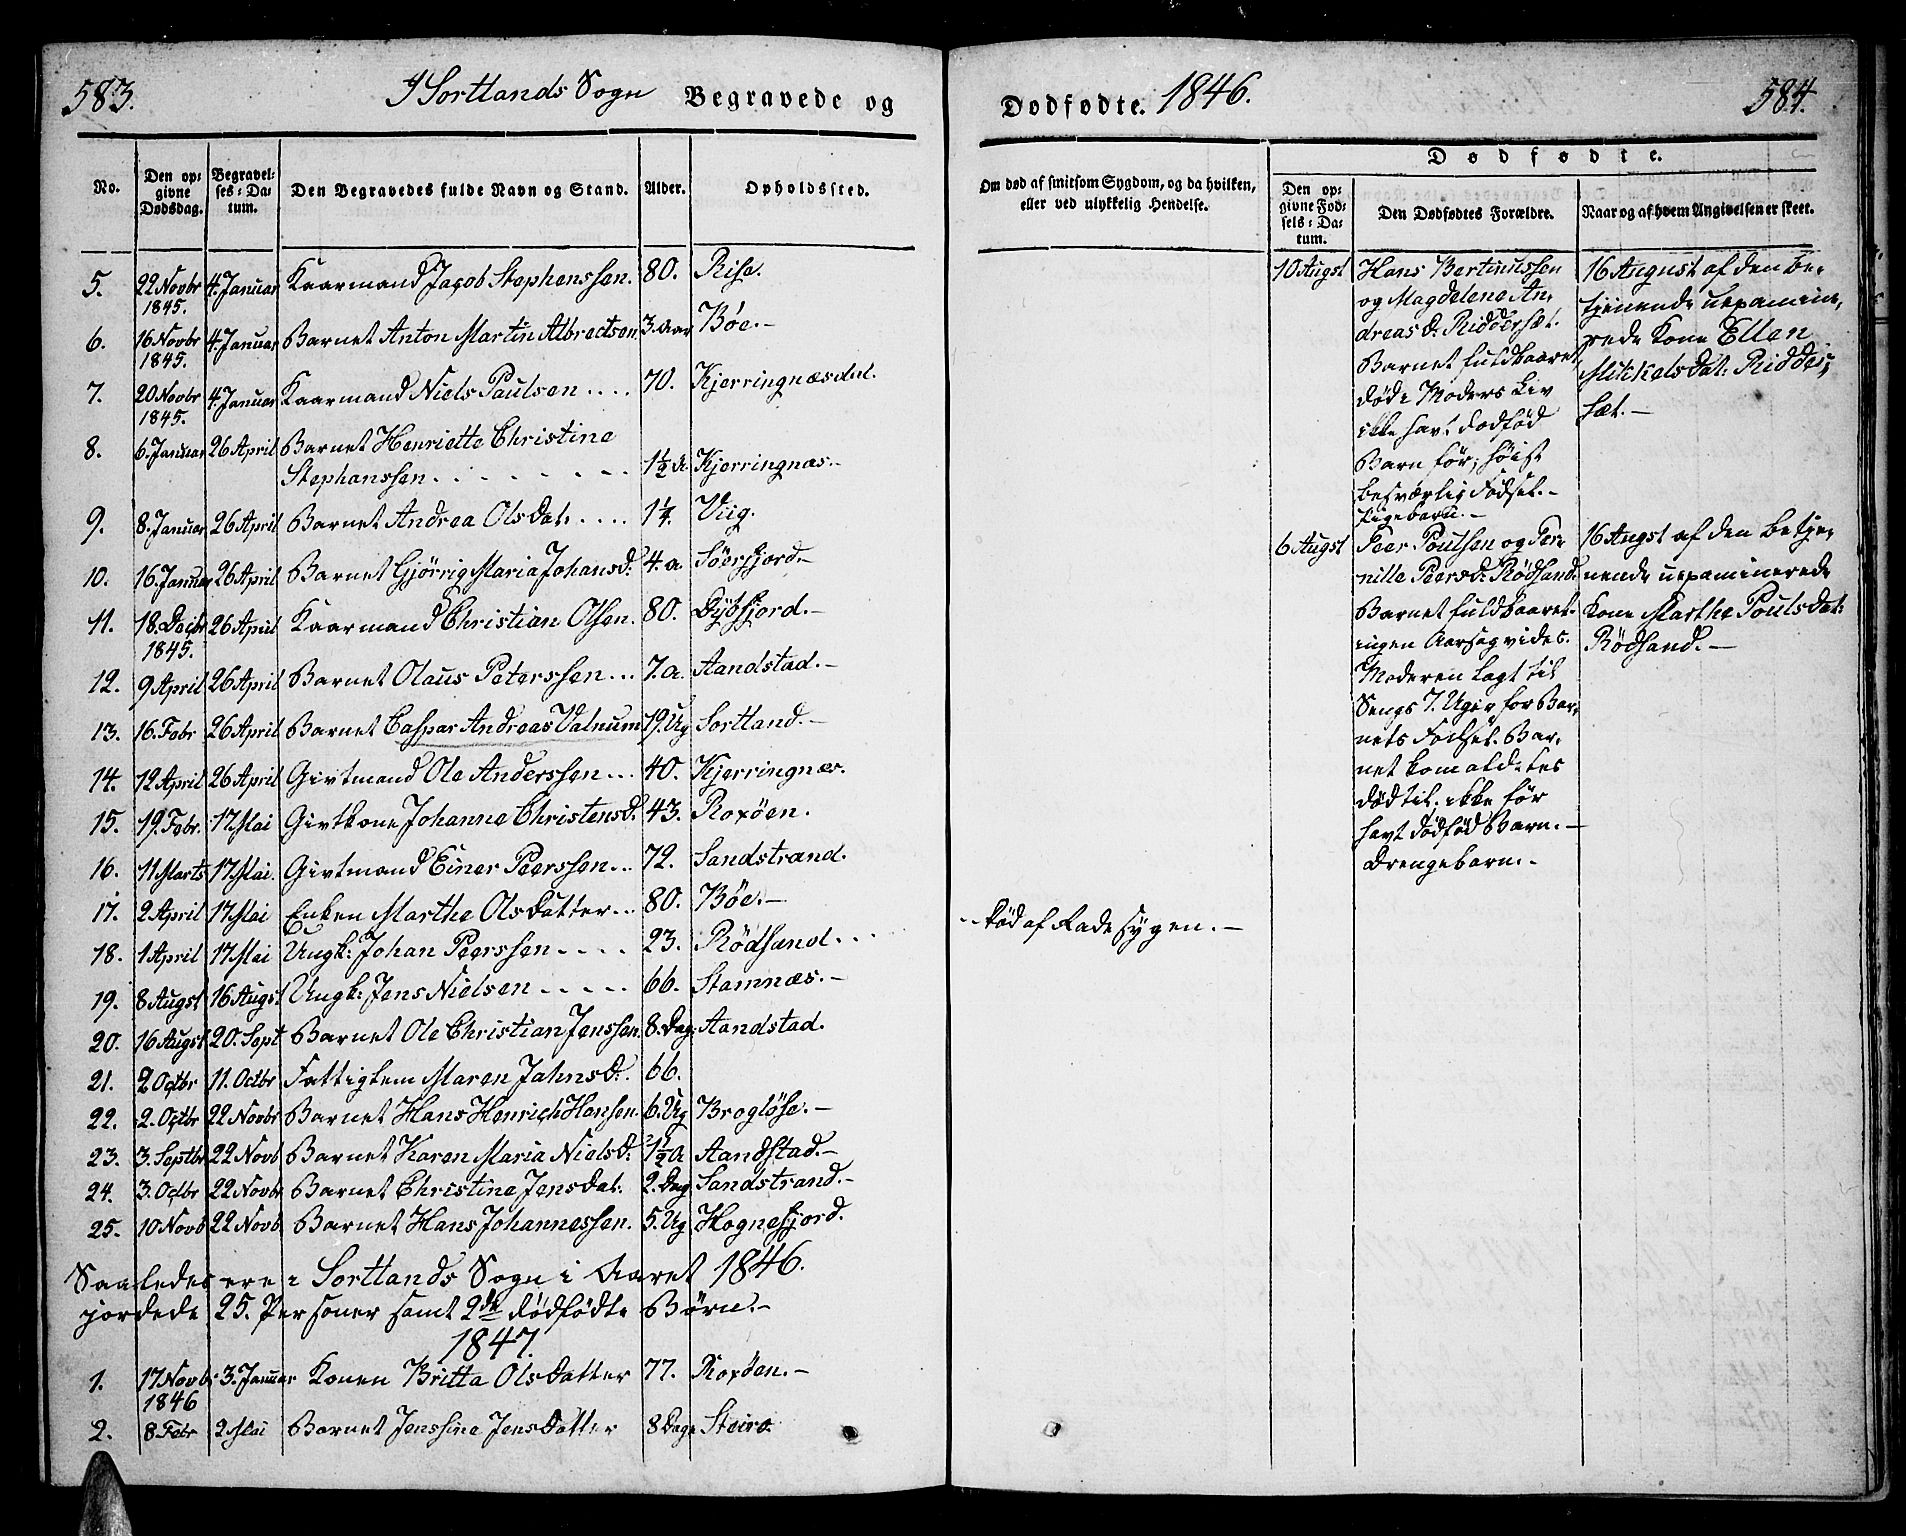 583.
I Sortlands Sogn Begravede og
No.
Den op-
givne
Dødsdag.
Begravel-
ses-Da-
tum.
Den Begravedes fulde Navn og Stand.
Alder.
Opholdssted.
5. 22 Novbr 4. Januar Kaarmand Jacob Stephenssen. 80. Rise.
1845.
6. 16 Novbr 4. Januar Barnet Anton Martin Albrectsen 3. Aar Bøe.-
1845.
7. 20 Novbr 4. Januar Kaarmand Niels Paulsen .... 70. Kjerringnæsdal.
1845.
8. 6. Januar 26 April Barnet Henriette Christine
Stephanssen . - - - - - - 1½ A Kjerringnæs.-
9. 8. Januar 26 April Barnet Andrea Olsdat: .... 1¼. Viig.
10. 16. Januar 26 April Barnet Gjørrig Maria Johansd: 4. a. Søerfjord.-
11. 18. Decbr 26 April Kaarmand Christian Olsen. 80. Dybfjord.-
1845.
12. 9 April 26 April Barnet Olaus Peterssen ... 7. a. Aandstad.-
13. 16. Febr 26 April Barnet Caspar Andreas Valnum 19. Ug Sortland.-
14. 12 April 26 April Givtmand Ole Anderssen ... 40. Kjerringnæs.
15. 19. Febr. 17 Mai Givtkone Johanne Christensd: 43. Roxøen.
16. 11 Marts 17 Mai. Givtmand Einer Peerssen ... 72. Sandstrand.
17. 2 April 17 Mai Enken Marthe Olsdatter .. 80. Bøe.-
18. 1 April 17 Mai Ungk: Johan Peerssen - - - - 23. Rødsand...
19. 8 Augst 16 Augst Ungk: Jens Nielsen - - - - - 66. Stamnæs.-
20. 16 Augst 20. Sept Barnet Ole Christian Jenssen. 8. Dag. Aandstad.
21. 2 Octbr 11. Octbr Fattiglem Maren Jahnsd: 66.
22. 2. Octbr 22 Novbr Barnet Hans Henrich Hansen. 6. Ug Brogløse.-
23. 3. Septbr 22 Novb Barnet Karen Maria Nielsd: 1½ A Aandstad.-
24. 3. Octbr 22 Novbr Barnet Christine Jensdat: 2. Dag Sandstrand.-
25. 10 Novb 22 Novb Barnet Hans Johannessen. 5. Ug Hognefjord.
Saaledes ere i Sortlands Sogn i Aaret 1846.
jordede 25. Personer samt 2de dødfødte Børn.-
1847.
1. 17 Novbr 3. Januar Konen Britta Olsdatter 77. Roxøen.-
1846
2. 8 Febr 2 Mai Barnet Jenssine Jensdatter 8 Dage Steiro
Dødfødte. 1846.
584.
Om død af smitsom Sygdom, og da hvilken,
eller ved ulykkelig Hendelse.
Dødfødte.
Den op-
givne Fød-
sels-Da-
tum.
Den Dødfødtes Forældre.
Naar og af hvem Angivelsen er skeet.
10 Augst Hans Bertinussen
og Magdelene An-
dreas d: Riddersæt.
Barnet fuldbaaret,
død i Moders Liv
ikke havt dødfød
Barn før; høist
besværlig Fødsel.-
Pigebarn.-
16 August af den be-
tjenende uexamine-
rede Kone Ellen
Mikkelsdat: Ridder-
sæt.-
6 Augst Peer Poulsen og Per-
nille Peersd: Rødsand.
Barnet fuldbaaret.
ingen Aarsag vides.
Moderen lagt til
Sengs 7. Uger for Bar-
nets Fødsel. Bar-
net kom aldeles
død til; ikke før
havt dødfød Barn.-
Drengebarn.-
16 Augst af den betje-
nende uexaminerede
Kone Marthe Poulsdat:
Rødsand.-
.. død af Radesygen.-